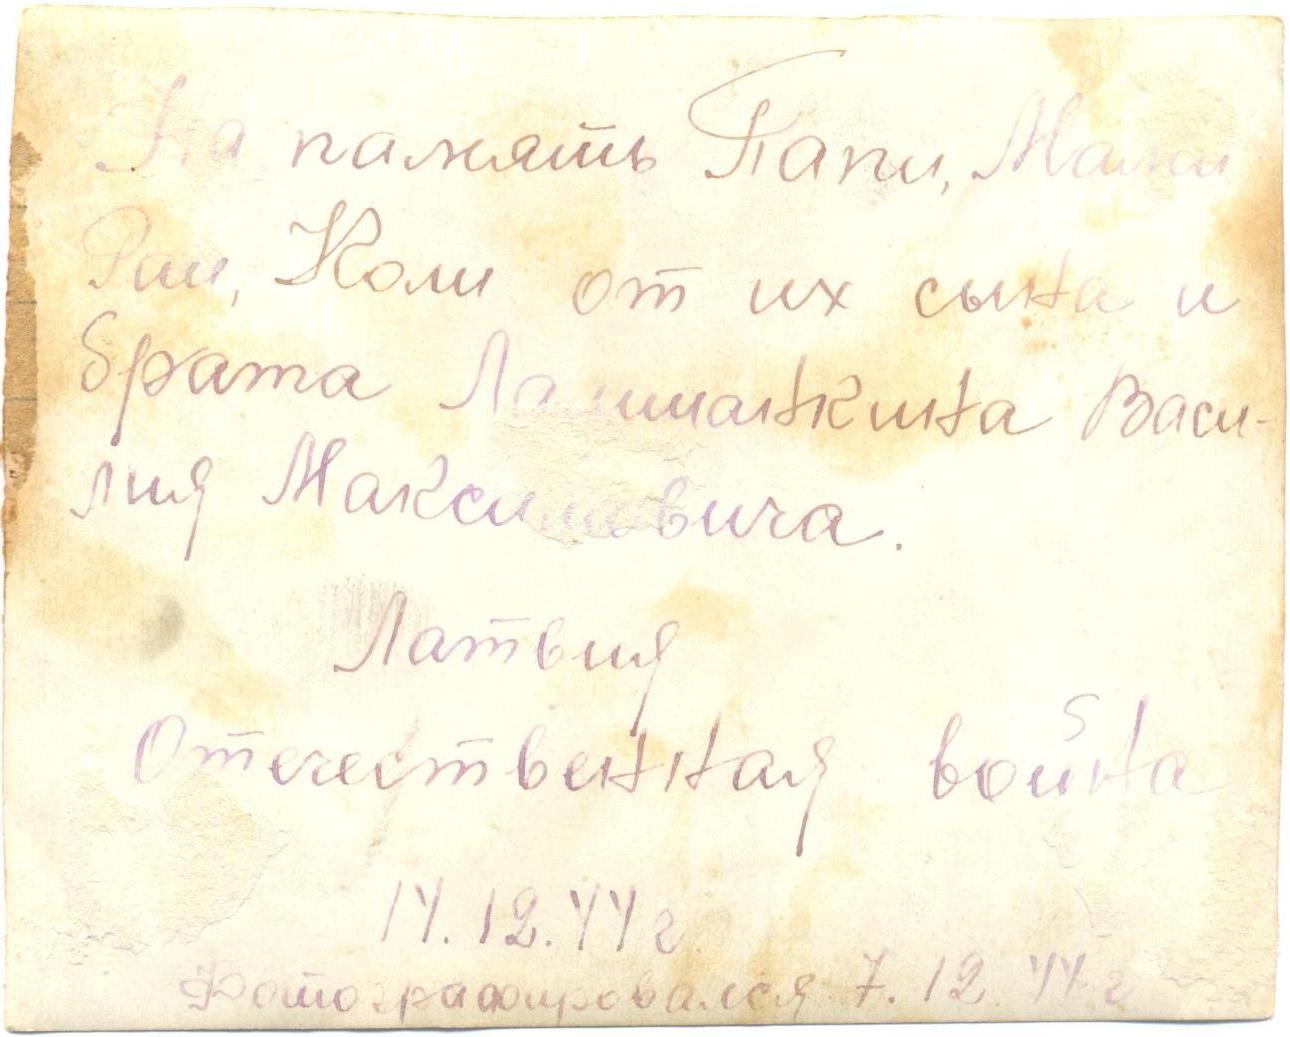 На память Папы, Мамы
Раи, Коли от их сына и
брата Лашманкина Васи-
лия Максимовича.
Латвия
Отечественная война
14.12.44 г
Фотографировался 7.12.44 г